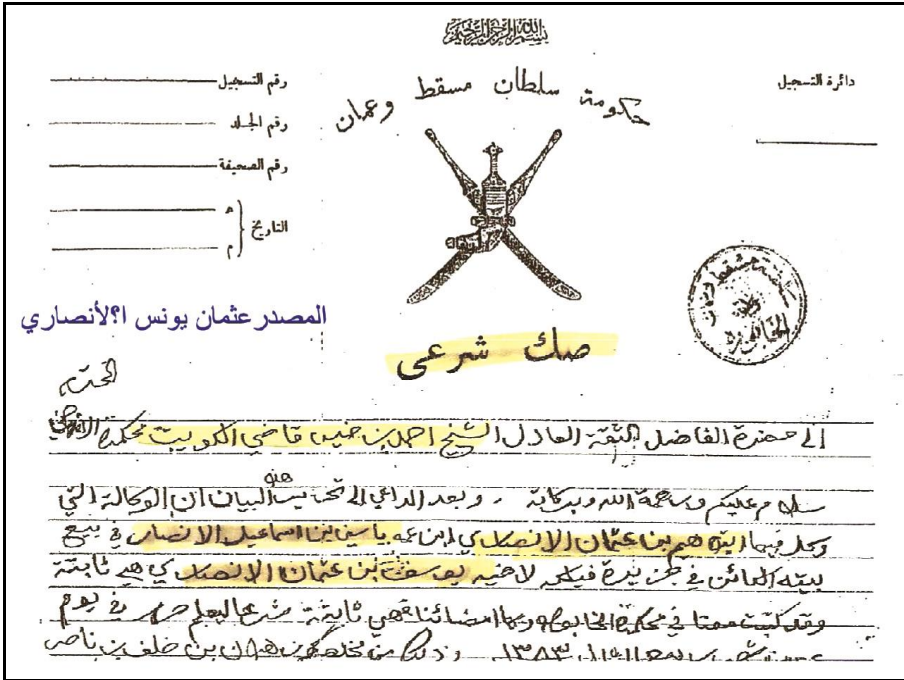 بسم الله الرحمن الرحيم
دائرة التسجيل
حكومة سلطان مسقط وعمان
رقم التسجيل
رقم الجلد
رقم الصحيفة
التاريخ
هـ
م
المصدر عثمان يونس ا؟لأنصاري
صك شرعي
الى حضرة الفاضل الثقة العادل الشيخ احمد بن خميس قاضي الكويت
سلام عليكم ورحمة الله وبركاته . وبعد الداعي الى تحرير هذا البيان ان الوكالة التي
وكل فيها ابراهيم بن عثمان الانصاري ابن عمه ياسين بن اسماعيل الانصاري في بيع
بيته الكائن في جزيرة فيلكه لاخيه يوسف بن عثمان الانصاري هي ثابتة
وقد كتبت هنا في محكمة الخابورة وبها امضائنا فهي ثابتة شرعا ليعلم حرر في يوم
١٣٨٣ بن خلف بن ناصر